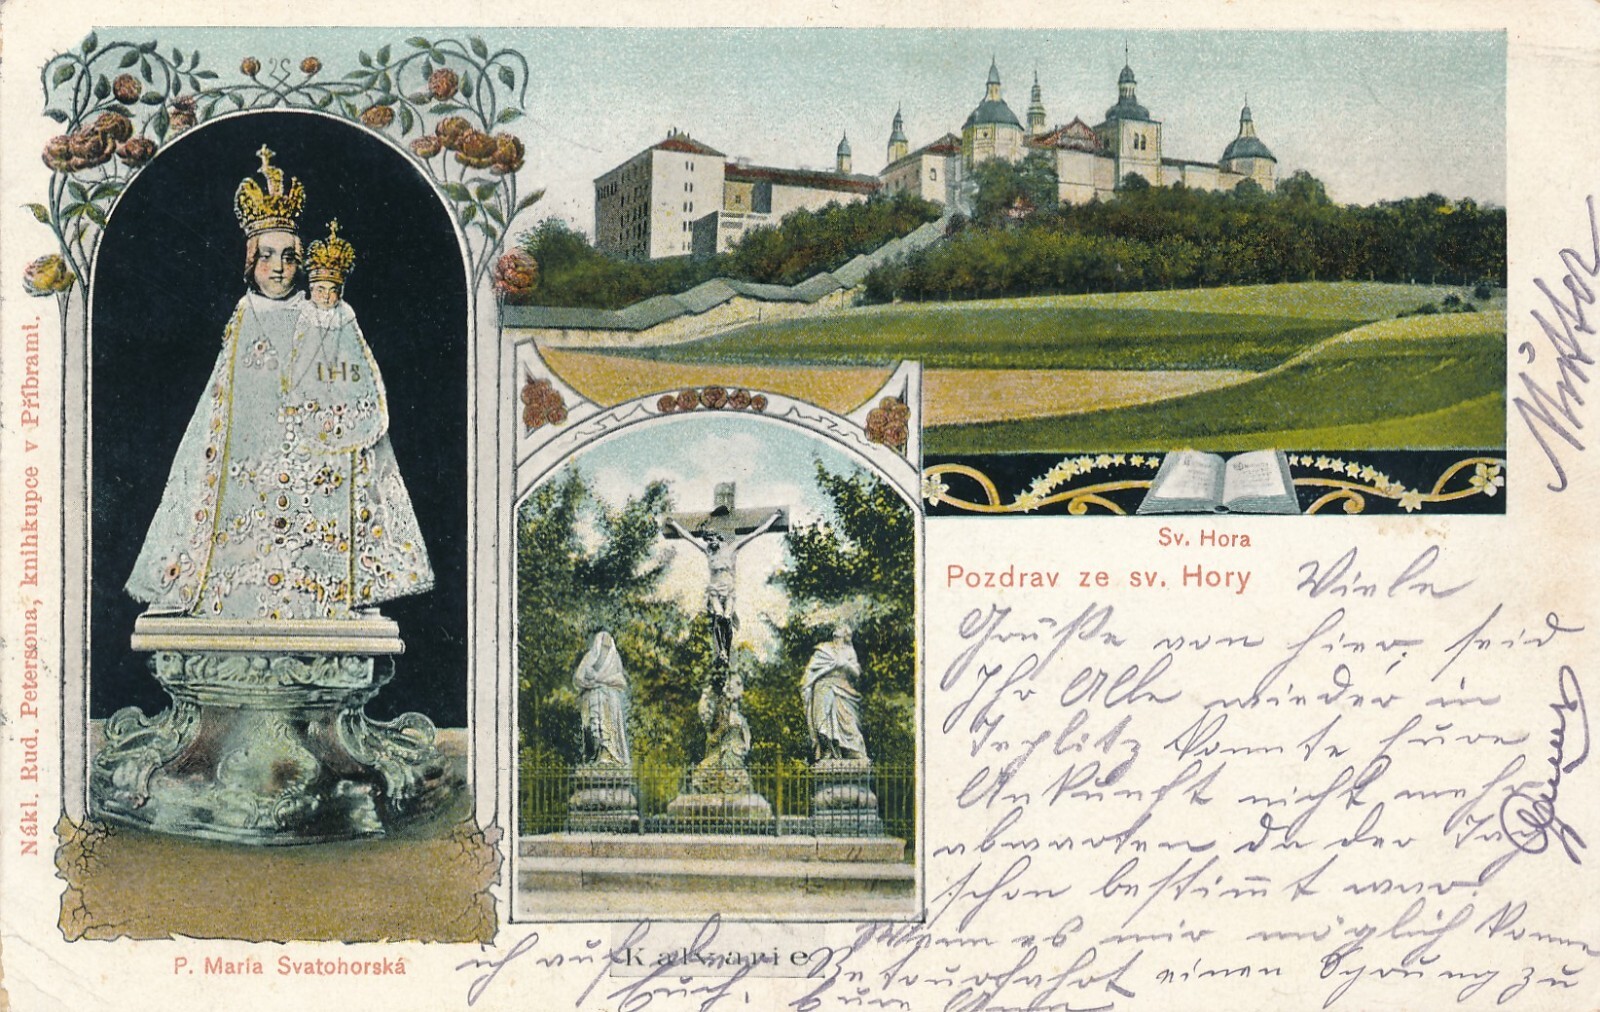 Nákl. Rud. Petersona, knihkupce v Příbrami.
IHS
P. Maria Svatohorská
Kalvarie
Sv. Hora
Pozdrav ze sv. Hory
Viele
Grüße von hier, seid
Ihr Alle wieder in
Teplitz konnte Eure
Ankunft nicht mehr
abwarten da der Tag
schon bestimmt war.
Wenn es mir möglich komme
ich auf der Retourfahrt einen Sprung zu
Euch. Eure Anna
Mutter